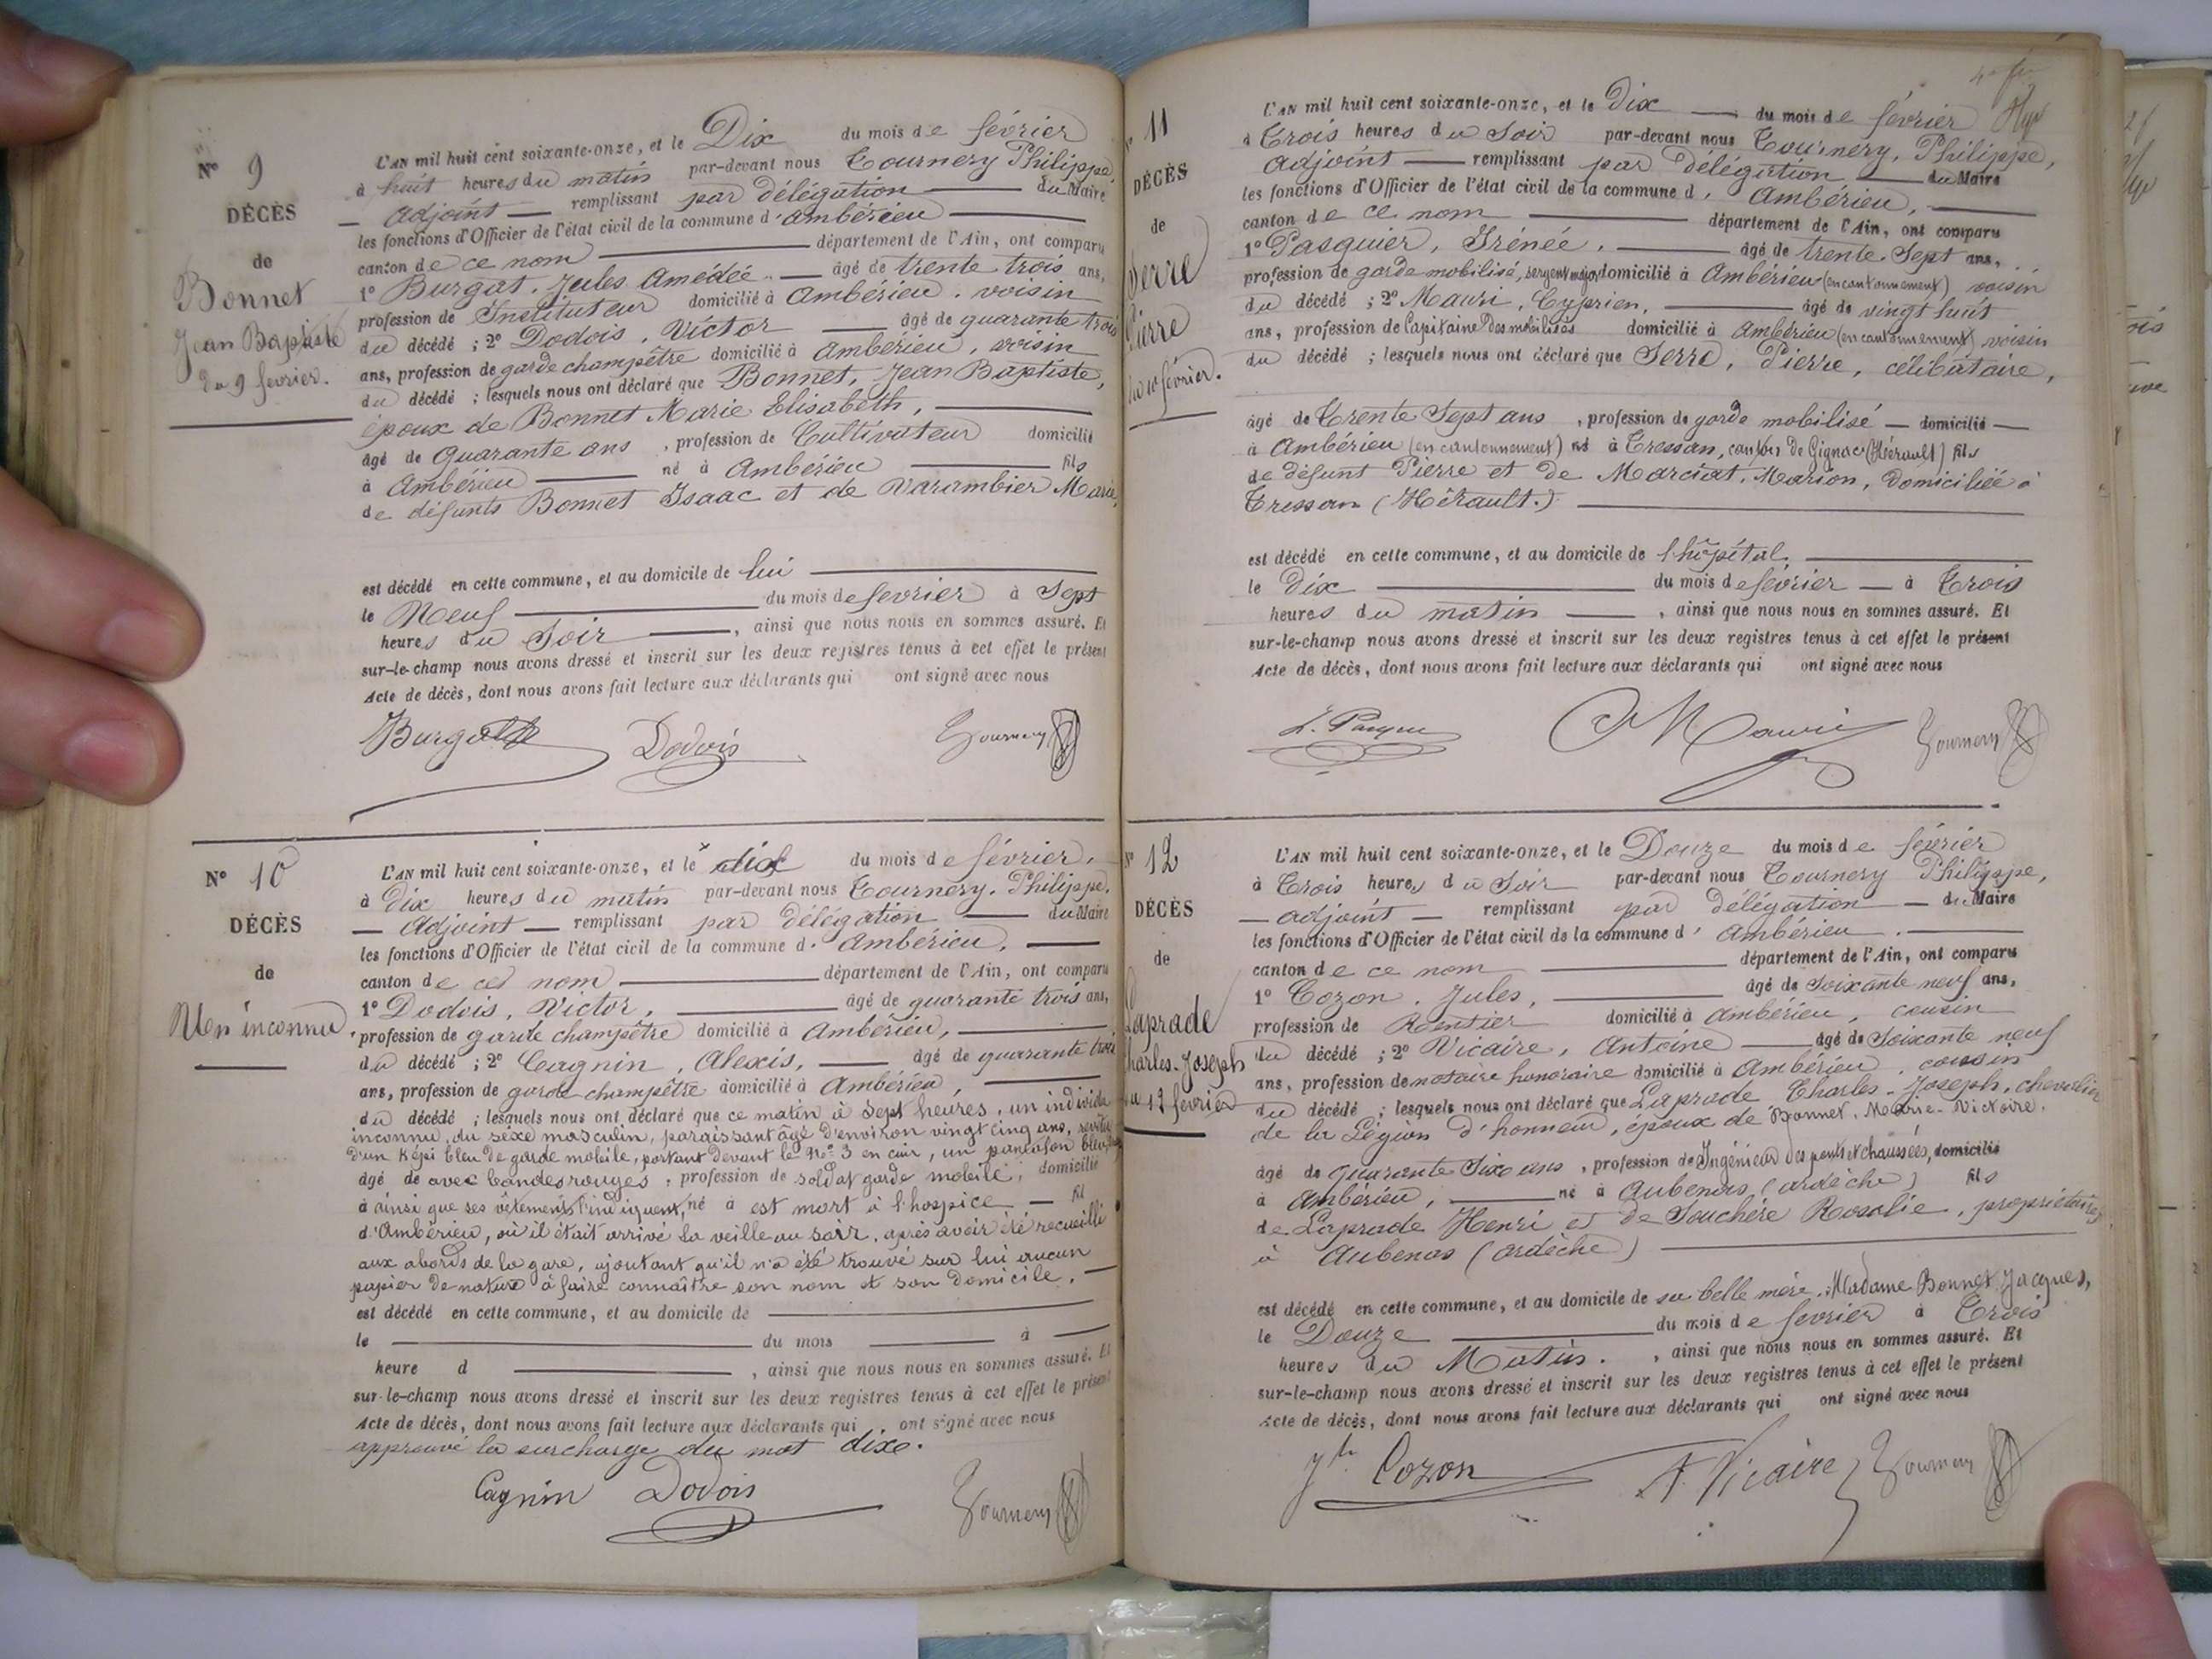 N° 9
DÉCÈS
de
Bonnet
Jean Baptiste
du 9 février.
L'AN mil huit cent soixante-onze, et le Dix du mois de février
à huit heures du matin par-devant nous Tournery Philippe,
adjoint remplissant par délégation du Maire
les fonctions d'Officier de l'état civil de la commune d'Ambérieu
canton de ce nom département de l'Ain, ont comparu
1° Burgat, Jules Amédée âgé de trente trois ans,
profession de Instituteur domicilié à Ambérieu, voisin
du décédé ; 2° Dodois, Victor âgé de quarante trois
ans, profession de garde champêtre domicilié à Ambérieu, voisin
du décédé ; lesquels nous ont déclaré que Bonnet, Jean Baptiste,
époux de Bonnet Marie Elisabeth,
âgé de quarante ans, profession de Cultivateur domicilié
à Ambérieu né à Ambérieu fils
de défunts Bonnet Isaac et de Varambier Marie,
est décédé en cette commune, et au domicile de lui
le Neuf du mois de fevrier à Sept
heures du Soir, ainsi que nous nous en sommes assuré. Et
sur-le-champ nous avons dressé et inscrit sur les deux registres tenus à cet effet le présent
Acte de décès, dont nous avons fait lecture aux déclarants qui ont signé avec nous
Burgat Dodois Tournery
N° 10
DÉCÈS
de
Un inconnu
L'AN mil huit cent soixante-onze, et le dix du mois de février,
à dix heures du matin par-devant nous Tournery, Philippe,
Adjoint remplissant par délégation du Maire
les fonctions d'Officier de l'état civil de la commune d'Ambérieu,
canton de cet nom département de l'Ain, ont comparu
1° Dodois, Victor, âgé de quarante trois ans,
profession de garde champêtre domicilié à Ambérieu,
du décédé ; 2° Cagnin, Alexis, âgé de quarante trois
ans, profession de garde champêtre domicilié à Ambérieu,
du décédé ; lesquels nous ont déclaré que ce matin à Sept heures, un individu
inconnu, du sexe masculin, paraissant âgé d'environ vingt cinq ans, revêtu
d'un Képi bleu de garde mobile, portant devant le N° 3 en cuir, un pantalon bleu
âgé de avec bandes rouges, profession de soldat garde mobile, domicilié
à ainsi que ses vêtements l'indiquent, né à est mort à l'hospice fil
d'Ambérieu, où il était arrivé la veille au soir, après avoir été recueilli
aux abords de la gare, ajoutant qu'il n'a été trouvé sur lui aucun
papier de nature à faire connaître son nom et son domicile.
est décédé en cette commune, et au domicile de
le du mois à
heure d , ainsi que nous nous en sommes assuré. Et
sur-le-champ nous avons dressé et inscrit sur les deux registres tenus à cet effet le présent
Acte de décès, dont nous avons fait lecture aux déclarants qui ont signé avec nous
approuvé la surcharge du mot dix.
Cagnin Dodois Tournery
11
DÉCÈS
de
Serre
Pierre
du 10 février.
L'AN mil huit cent soixante-onze, et le Dix du mois de février
à Trois heures du Soir par-devant nous Tournery, Philippe,
adjoint remplissant par délégation du Maire
les fonctions d'Officier de l'état civil de la commune d'Ambérieu,
canton de ce nom département de l'Ain, ont comparu
1° Pasquier, Irénée, âgé de trente Sept ans,
profession de garde mobilisé, sergent major domicilié à Ambérieu (en cantonnement) voisin
du décédé ; 2° Mauri, Cyprien, âgé de vingt huit
ans, profession de Capitaine des mobilisés domicilié à Ambérieu (en cantonnement) voisin
du décédé ; lesquels nous ont déclaré que Serre, Pierre, célibataire,
âgé de Trente Sept ans, profession de garde mobilisé domicilié
à Ambérieu (en cantonnement) né à Tressan, canton de Gignac (Hérault) fils
de défunt Pierre et de Marciat, Marion, domiciliée à
Tressan (Hérault.)
est décédé en cette commune, et au domicile de l'hôpital
le dix du mois de février à Trois
heures du matin, ainsi que nous nous en sommes assuré. Et
sur-le-champ nous avons dressé et inscrit sur les deux registres tenus à cet effet le présent
Acte de décès, dont nous avons fait lecture aux déclarants qui ont signé avec nous
Mauri Tournery
N° 12
DÉCÈS
de
Laprade
Charles-Joseph
du 12 fevrier
L'AN mil huit cent soixante-onze, et le Douze du mois de février
à Trois heures du Soir par-devant nous Tournery Philippe,
adjoint remplissant par délégation du Maire
les fonctions d'Officier de l'état civil de la commune d'Ambérieu.
canton de ce nom département de l'Ain, ont comparu
1° Cozon, Jules, âgé de Soixante neuf ans,
profession de Rentier domicilié à Ambérieu, cousin
du décédé ; 2° Vicaire, Antoine âgé de Soixante neuf
ans, profession de notaire honoraire domicilié à Ambérieu, cousin
du décédé ; lesquels nous ont déclaré que Laprade Charles-Joseph, chevalier
de la Légion d'honneur, époux de Bonnet, Marie-Victoire.
âgé de quarante Six ans, profession de Ingénieur des ponts et chaussées, domicilié
à Ambérieu, né à Aubenas (ardèche) fils
de Laprade Henri et de Souchère Rosalie, propriétaires
à Aubenas (ardèche)
est décédé en cette commune, et au domicile de sa belle mère, Madame Bonnet Jacques,
le Douze du mois de fevrier à Trois
heures du Matin., ainsi que nous nous en sommes assuré. Et
sur-le-champ nous avons dressé et inscrit sur les deux registres tenus à cet effet le présent
Acte de décès, dont nous avons fait lecture aux déclarants qui ont signé avec nous
Cozon A. Vicaire Tournery